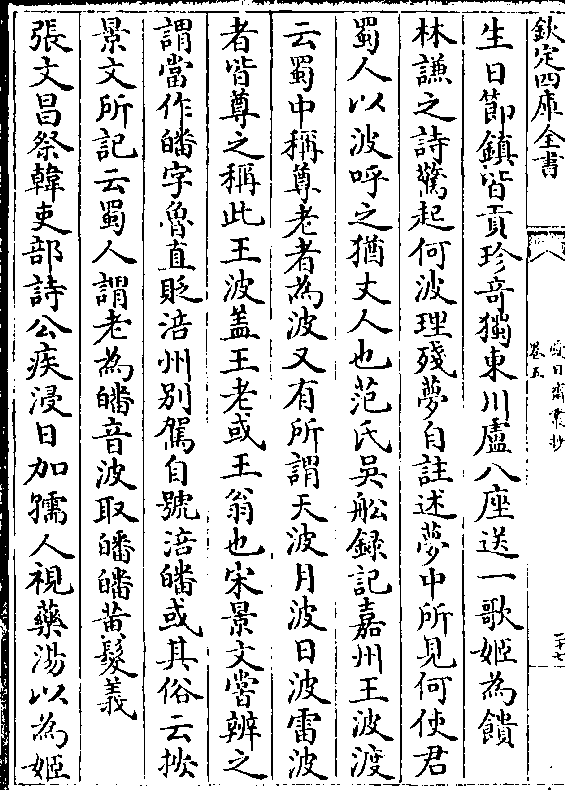 欽定四庫全書
愛日齋叢抄
卷五
二十七
生日節鎮皆貢珍奇獨東川盧八座送一歌姬為饋
林謙之詩驚起何波理殘夢自註述夢中所見何使君
蜀人以波呼之猶丈人也范氏吳船録記嘉州王波渡
云蜀中稱尊老者為波又有所謂天波月波日波雷波
者皆尊之稱此王波蓋王老或王翁也宋景文嘗辨之
謂當作皤字魯直貶涪州别駕自號涪皤或其俗云按
景文所記云蜀人謂老為皤音波取皤皤黄髮義
張文昌祭韓吏部詩公疾浸日加孺人視藥湯以為姬